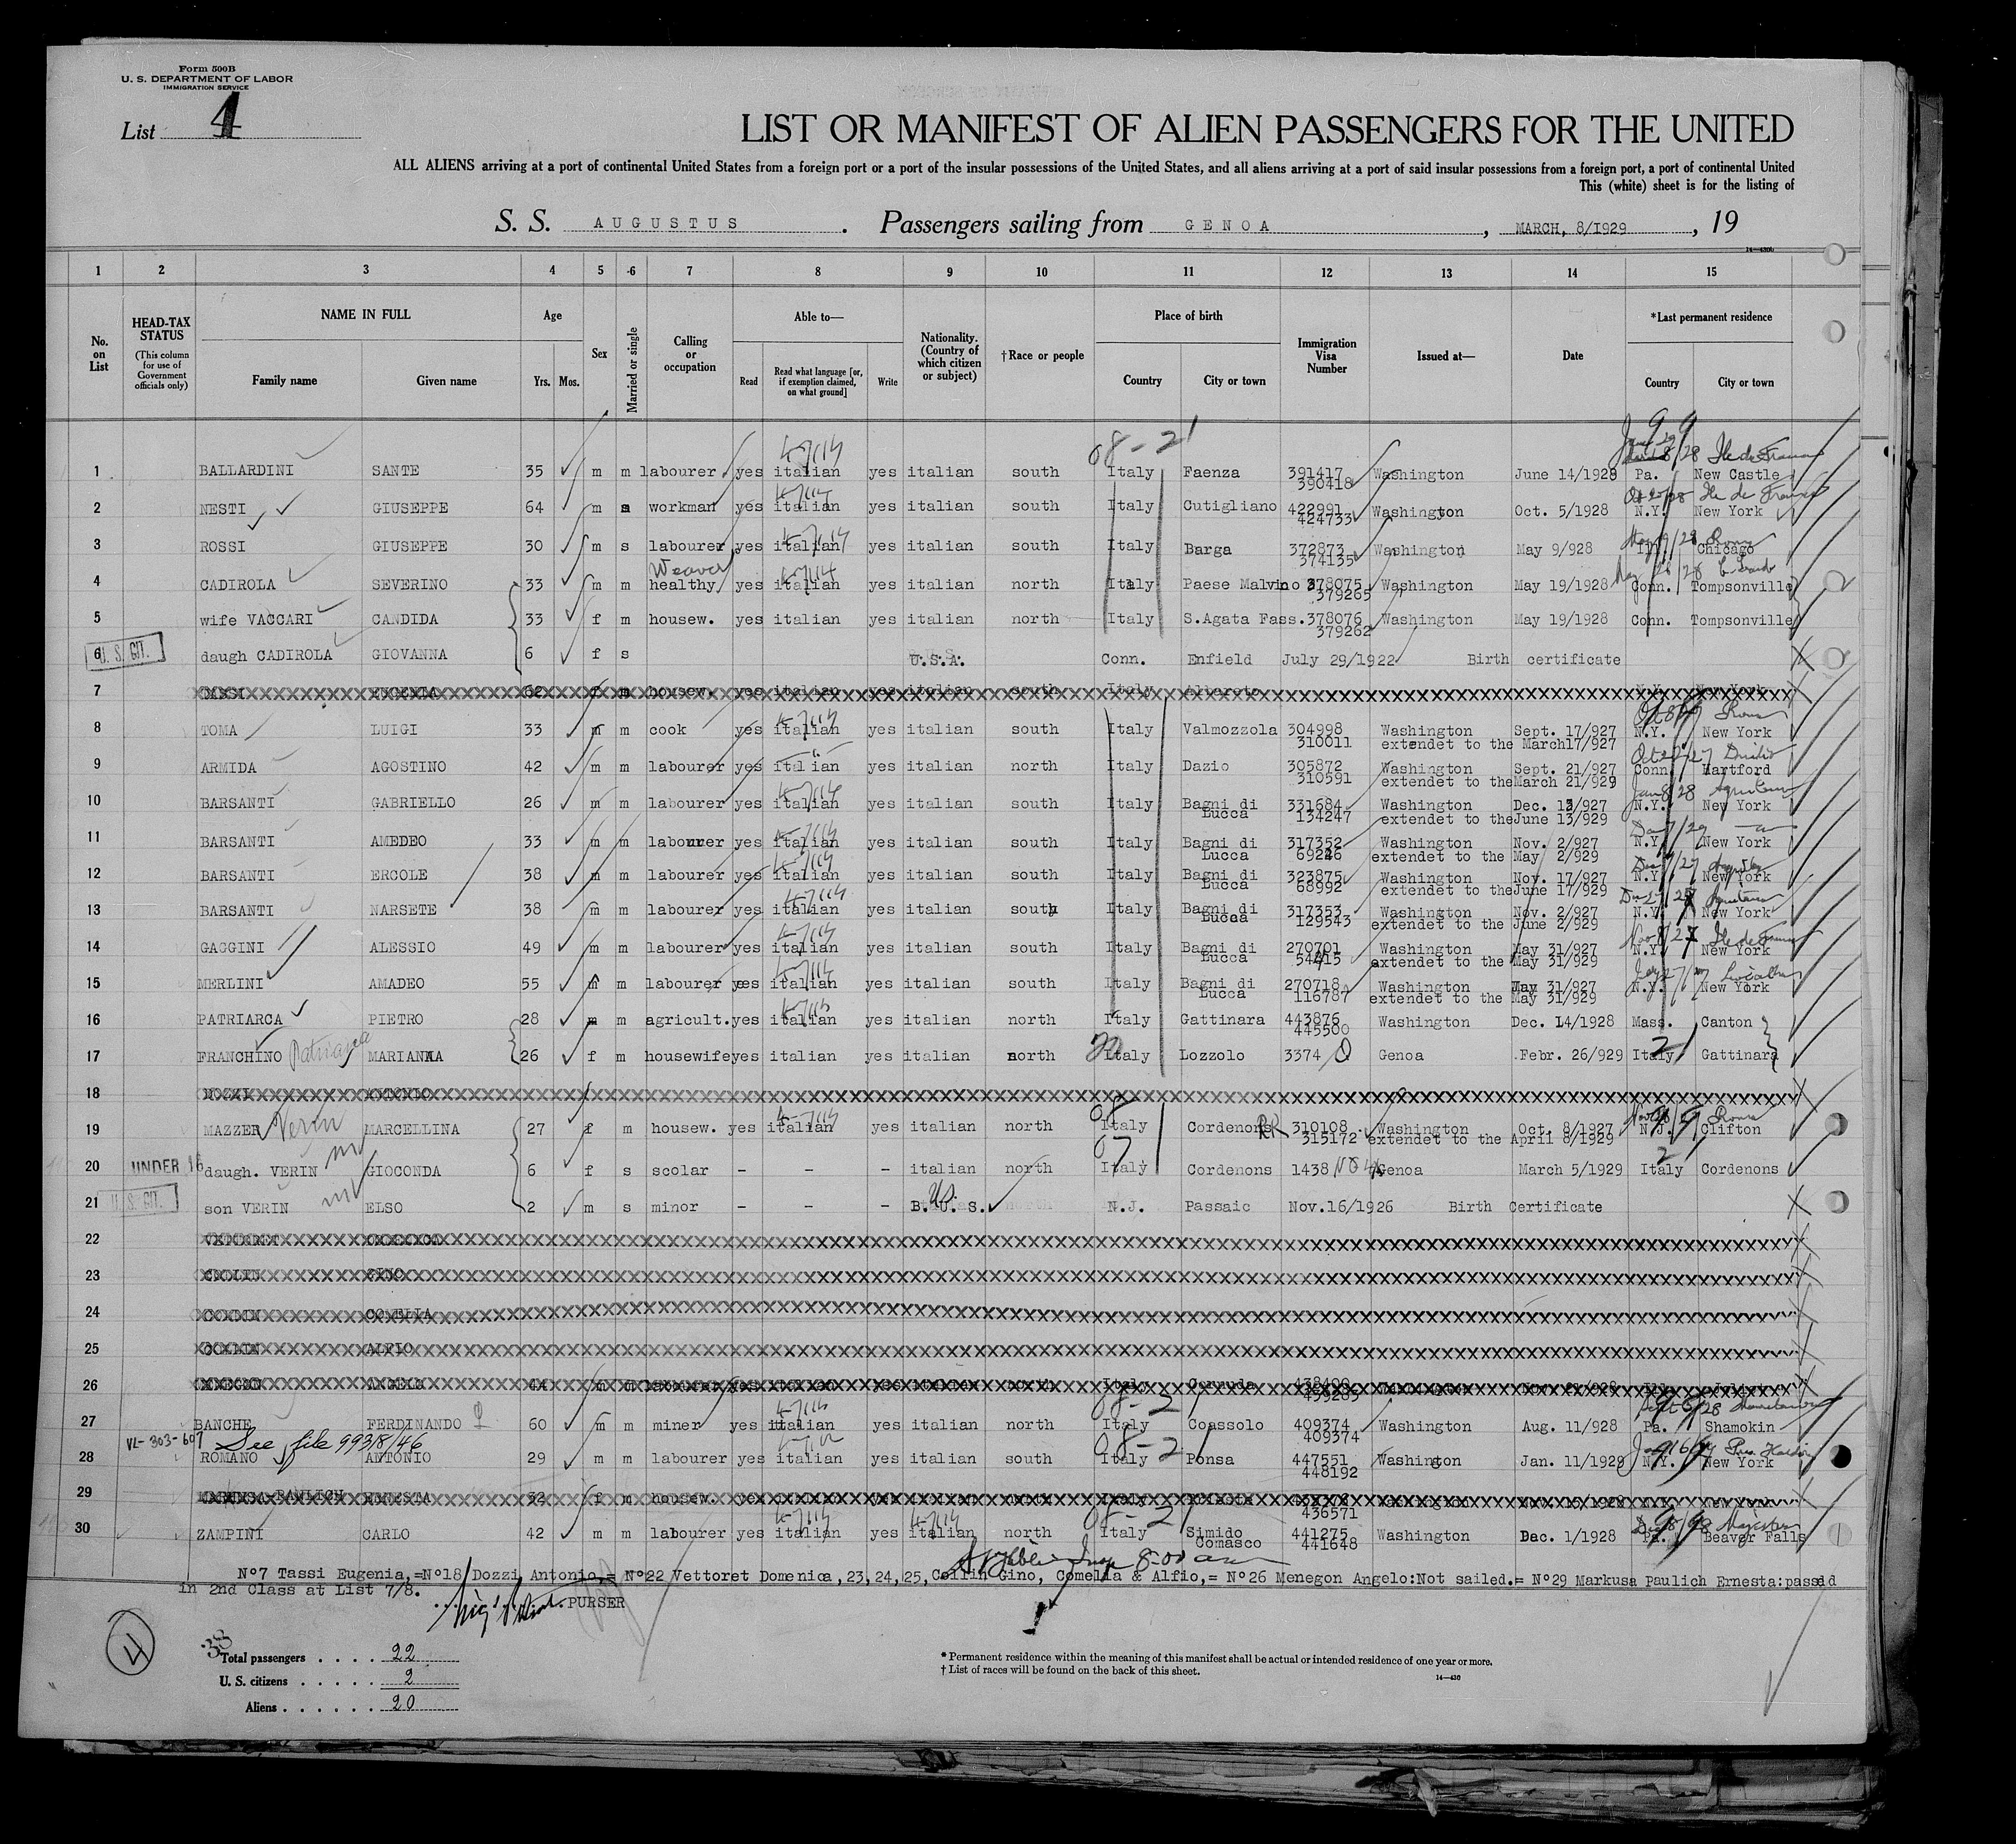 Form 500B
U. S. DEPARTMENT OF LABOR
IMMIGRATION SERVICE
List 4
LIST OR MANIFEST OF ALIEN PASSENGERS FOR THE UNITED
ALL ALIENS arriving at a port of continental United States from a foreign port or a port of the insular possessions of the United States, and all aliens arriving at a port of said insular possessions from a foreign port, a port of continental United
This (white) sheet is for the listing of
S. S. AUGUSTUS. Passengers sailing from GENOA, MARCH, 8/1929, 19
14—430b
1 2 3 4 5 6 7 8 9 10 11 12 13 14 15
No. on List
HEAD-TAX STATUS
(This column for use of Government officials only)
NAME IN FULL
Family name Given name
Age
Yrs. Mos.
Sex
Married or single
Calling or occupation
Able to—
Read Read what language [or, if exemption claimed, on what ground] Write
Nationality. (Country of which citizen or subject)
†Race or people
Place of birth
Country City or town
Immigration Visa Number
Issued at—
Date
*Last permanent residence
Country City or town
08-21
1 BALLARDINI SANTE 35 m m labourer yes italian yes italian south Italy Faenza 391417 390418 Washington June 14/1928 Pa. New Castle
2 NESTI GIUSEPPE 64 m s workman yes italian yes italian south Italy Cutigliano 422991 424733 Washington Oct. 5/1928 N.Y. New York
3 ROSSI GIUSEPPE 30 m s labourer yes italian yes italian south Italy Barga 372873 374135 Washington May 9/928 Ill. Chicago
Weaver
4 CADIROLA SEVERINO 33 m m healthy yes italian yes italian north Italy Paese Malvino 378075 379265 Washington May 19/1928 Conn. Tompsonville
5 wife VACCARI CANDIDA 33 f m housew. yes italian yes italian north Italy S.Agata Fass. 378076 379262 Washington May 19/1928 Conn. Tompsonville
U. S. CIT.
6 daugh CADIROLA GIOVANNA 6 f s U.S.A. Conn. Enfield July 29/1922 Birth certificate
7 TASSI EUGENIA 62 f m housew. yes italian yes italian south Italy Albareto N.Y. New York
8 TOMA LUIGI 33 m m cook yes italian yes italian south Italy Valmozzola 304998 310011 Washington Sept. 17/927 N.Y. New York
extendet to the March17/927
9 ARMIDA AGOSTINO 42 m m labourer yes italian yes italian north Italy Dazio 305872 310591 Washington Sept. 21/927 Conn. Hartford
extendet to the March 21/929
10 BARSANTI GABRIELLO 26 m m labourer yes italian yes italian south Italy Bagni di Lucca 331684 134247 Washington Dec. 13/927 N.Y. New York
extendet to the June 13/929
11 BARSANTI AMEDEO 33 m m labourer yes italian yes italian south Italy Bagni di Lucca 317352 69246 Washington Nov. 2/927 N.Y. New York
extendet to the May 2/929
12 BARSANTI ERCOLE 38 m m labourer yes italian yes italian south Italy Bagni di Lucca 323875 68992 Washington Nov. 17/927 N.Y. New York
extendet to the June 17/929
13 BARSANTI NARSETE 38 m m labourer yes italian yes italian south Italy Bagni di Lucca 317353 129543 Washington Nov. 2/927 N.Y. New York
extendet to the June 2/929
14 GAGGINI ALESSIO 49 m m labourer yes italian yes italian south Italy Bagni di Lucca 270701 54415 Washington May 31/927 N.Y. New York
extendet to the May 31/929
15 MERLINI AMADEO 55 m m labourer yes italian yes italian south Italy Bagni di Lucca 270718 116787 Washington May 31/927 N.Y. New York
extendet to the May 31/929
16 PATRIARCA PIETRO 28 m m agricult. yes italian yes italian north Italy Gattinara 443876 445500 Washington Dec. 14/1928 Mass. Canton
17 FRANCHINO Patriarca MARIANNA 26 f m housewife yes italian yes italian north Italy Lozzolo 3374 Q Genoa Febr. 26/929 Italy Gattinara
18 DOZZI ANTONIO
19 MAZZER Verin MARCELLINA 27 f m housew. yes italian yes italian north Italy Cordenons 310108 315172 Washington Oct. 8/1927 N.J. Clifton
extendet to the April 8/1929
UNDER 16
20 daugh. VERIN GIOCONDA 6 f s scolar - - - italian north Italy Cordenons 1438 Genoa March 5/1929 Italy Cordenons
U. S. CIT.
21 son VERIN ELSO 2 m s minor - - - U. S. N.J. Passaic Nov.16/1926 Birth Certificate
22 VETTORET DOMENICA
23 COLLIN GINO
24 COLLIN COMELIA
25 COLLIN ALFIO
26 MENEGON ANGELO 44 m m labourer yes italian yes italian north Italy 438400 439285 Washington
27 BANCHE FERDINANDO 60 m m miner yes italian yes italian north Italy Coassolo 409374 409374 Washington Aug. 11/928 Pa. Shamokin
VL-303-607 See file 99318/46
28 ROMANO ANTONIO 29 m m labourer yes italian yes italian south Italy Ponsa 447551 448192 Washington Jan. 11/1929 N.Y. New York
29 MARKUSA PAULICH ERNESTA 32 f m housew. yes italian yes italian north Italy 436571 Washington
30 ZAMPINI CARLO 42 m m labourer yes italian yes italian north Italy Simido Comasco 441275 441648 Washington Dec. 1/1928 Pa. Beaver Falls
Nº7 Tassi Eugenia,=Nº18 Dozzi Antonio,= Nº22 Vettoret Domenica,23,24,25,Collin Gino, Comelia & Alfio,= Nº26 Menegon Angelo:Not sailed.= Nº29 Markusa Paulich Ernesta:passed
in 2nd Class at List 7/8.
PURSER
4
38
Total passengers . . . . 22
U. S. citizens . . . . . 2
Aliens . . . . . . 20
* Permanent residence within the meaning of this manifest shall be actual or intended residence of one year or more.
† List of races will be found on the back of this sheet.
14—430